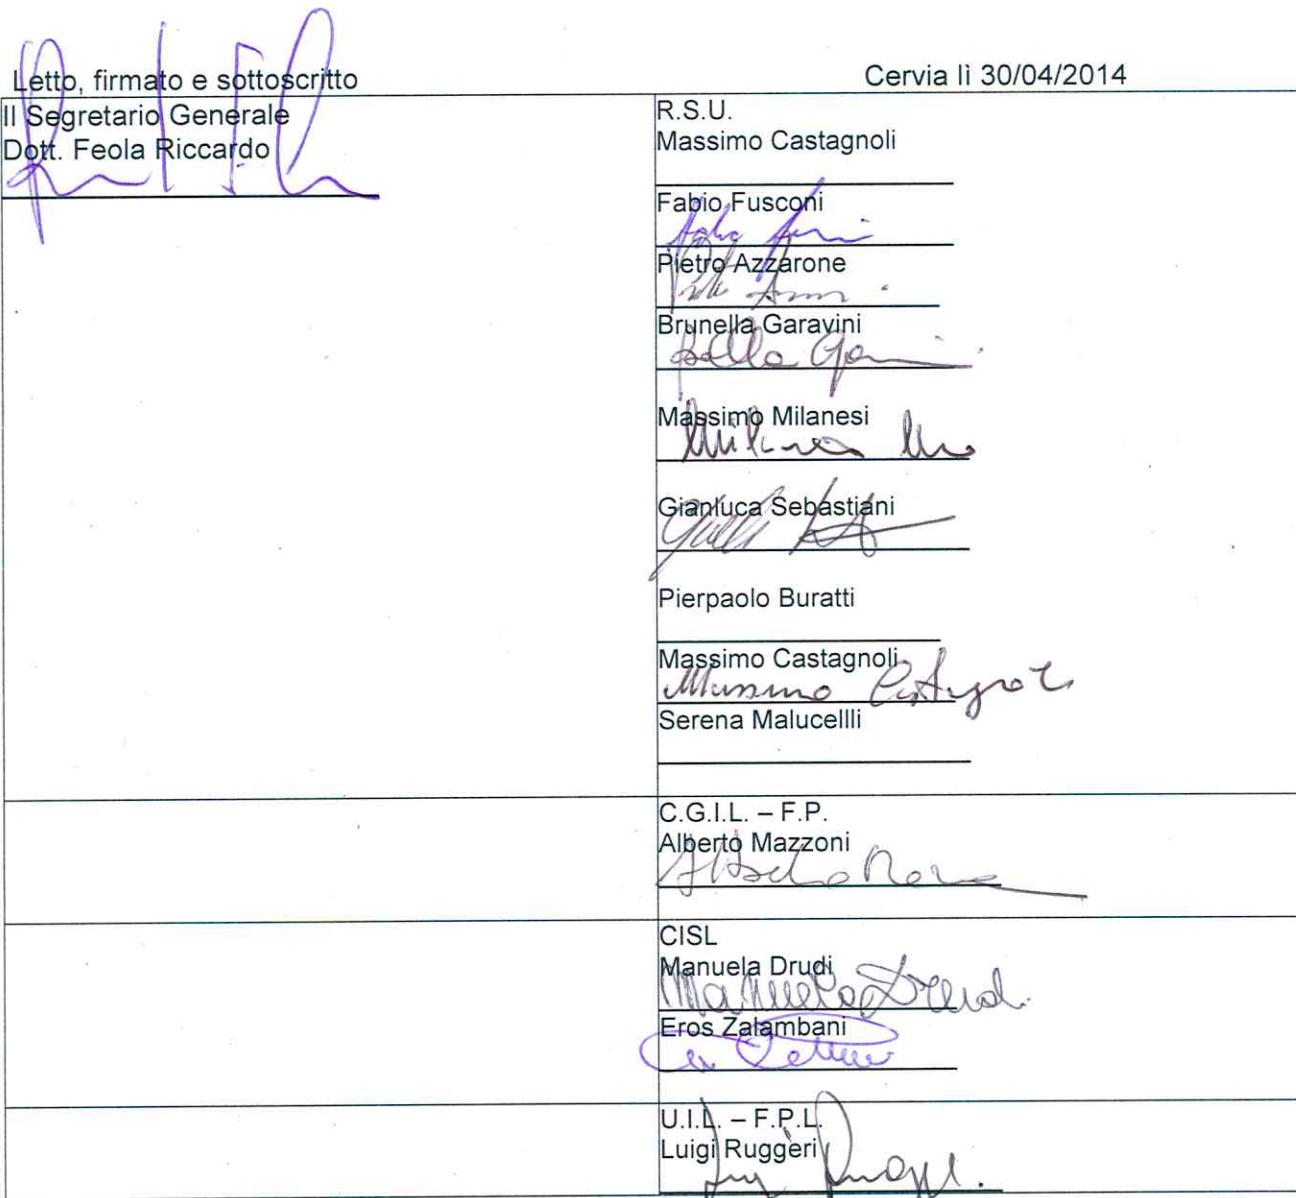 Letto, firmato e sottoscritto
Cervia lì 30/04/2014
Il Segretario Generale
Dott. Feola Riccardo
R.S.U.
Massimo Castagnoli
Fabio Fusconi
Pietro Azzarone
Brunella Garavini
Massimo Milanesi
Gianluca Sebastiani
Pierpaolo Buratti
Massimo Castagnoli
Massimo Castagnoli
Serena Malucellli
C.G.I.L. – F.P.
Alberto Mazzoni
CISL
Manuela Drudi
Manuela Drudi
Eros Zalambani
U.I.L. – F.P.L.
Luigi Ruggeri